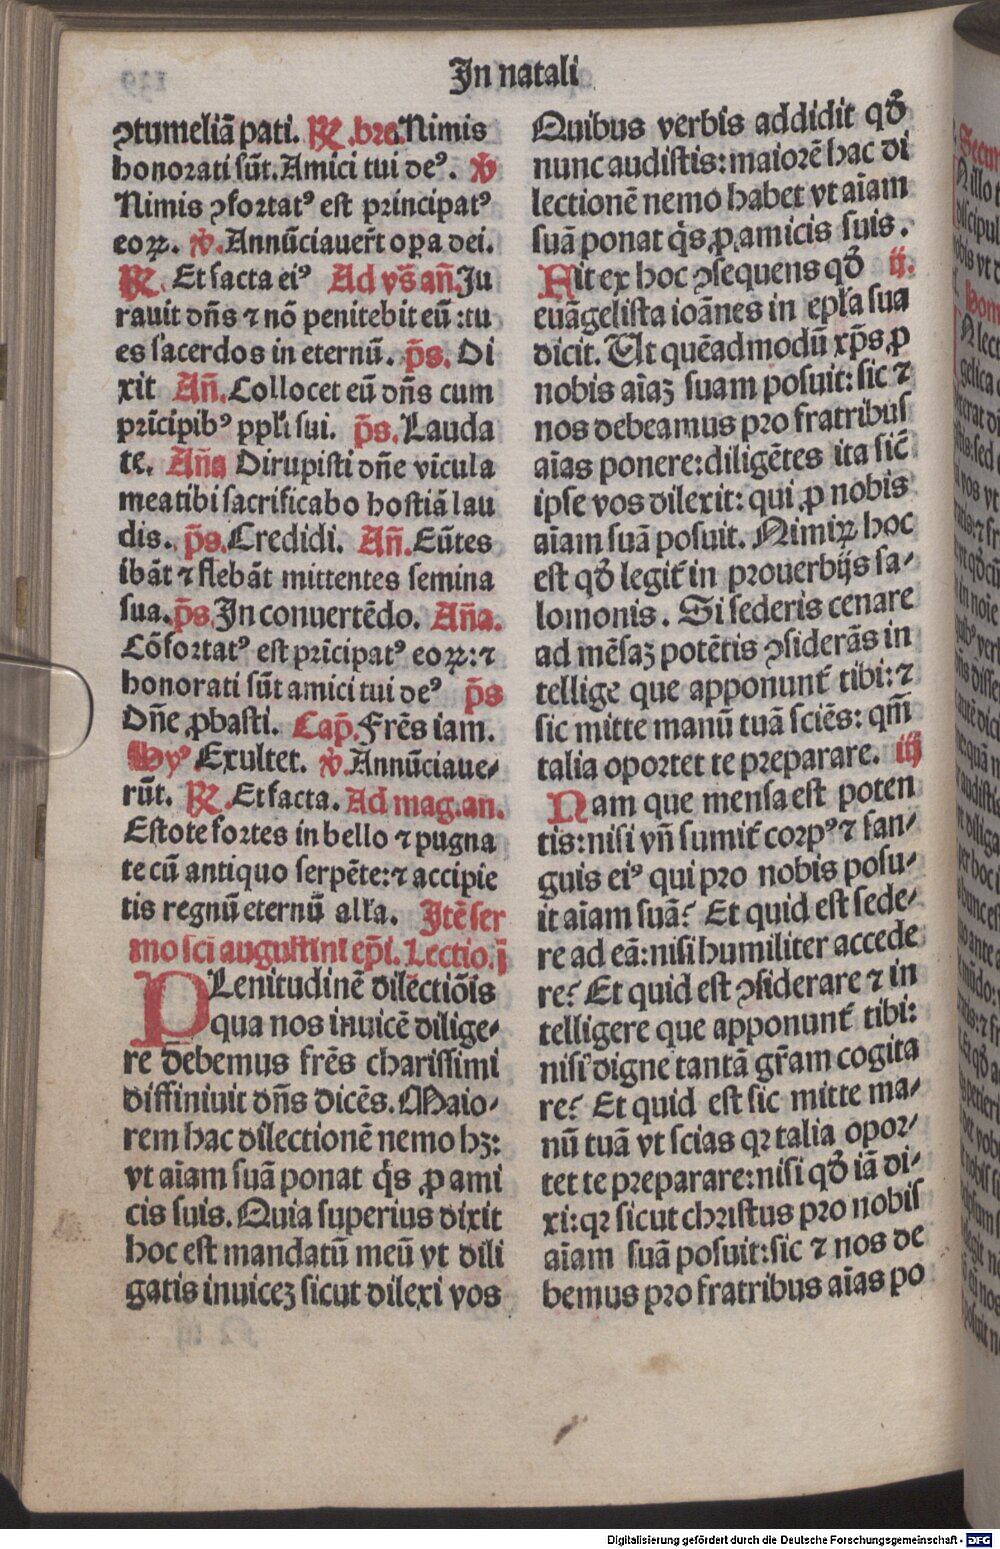 In natali
ꝯtumeliā pati. ℟. bre. Nimis
honorati sūt. Amici tui deꝰ. ℣
Nimis ꝯfortatꝰ est principatꝰ
eoꝝ. ℣. Annūciauer̄t oꝑa dei.
℟. Et facta eiꝰ Ad vs̄ an̄. Ju
rauit dn̄s ⁊ nō penitebit eū: tu
es sacerdos in eternū. ps̄. Di
xit An̄. Collocet eū dn̄s cum
prīcipibꝰ ppl̄i sui. ps̄. Lauda
te. An̄a Dirupisti dn̄e vīcula
mea tibi sacrificabo hostiā lau
dis. ps̄. Credidi. An̄. Eūtes
ibāt ⁊ flebāt mittentes semina
sua. ps̄. In conuertēdo. An̄a.
Cōfortatꝰ est prīcipatꝰ eoꝝ: ⁊
honorati sūt amici tui deꝰ ps̄
Dn̄e ꝓbasti. Cap̄. Frēs iam.
Hyꝰ Exultet. ℣. Annūciaue⸗
rūt. ℟. Et facta. Ad mag. an.
Estote fortes in bello ⁊ pugna
te cū antiquo serpēte: ⁊ accipie
tis regnū eternū all̄a. Itē ser
mo sc̄i augustini ep̄i. Lectio. j
PLenitudinē dilectiōis
qua nos inuicē dilige⸗
re debemus frēs charissimi
diffiniuit dn̄s dicēs. Maio⸗
rem hac dilectionē nemo hꝫ:
vt aīam suā ponat q̄s ꝓ ami
cis suis. Quia superius dixit
hoc est mandatū meū vt dili
gatis inuiceꝫ sicut dilexi vos
Quibus verbis addidit qd̄
nunc audistis: maiorē hac di
lectionē nemo habet vt aīam
suā ponat q̄s ꝓ amicis suis.
Ait ex hoc ꝯsequens qd̄ ij.
euāgelista ioānes in epl̄a sua
dicit. Ut quēadmodū xp̄s ꝓ
nobis aīaꝫ suam posuit: sic ⁊
nos debeamus pro fratribus
aīas ponere: diligētes ita sic̄
ipse vos dilexit: qui ꝓ nobis
aīam suā posuit. Nimiꝝ hoc
est qd̄ legit̄ in prouerbijs sa⸗
lomonis. Si sederis cenare
ad mēsaꝫ potētis ꝯsiderās in
tellige que apponunt̄ tibi: ⁊
sic mitte manū tuā sciēs: qm̄
talia oportet te preparare. iij
Nam que mensa est poten
tis: nisi vn̄ sumit̄ corpꝰ ⁊ san⸗
guis eiꝰ qui pro nobis posu⸗
it aīam suā? Et quid est sede⸗
re ad eā: nisi humiliter accede
re? Et quid est ꝯsiderare ⁊ in
telligere que apponunt̄ tibi:
nisi digne tantā gr̄am cogita
re? Et quid est sic mitte ma⸗
nū tuā vt scias qꝛ talia opor⸗
tet te preparare: nisi qd̄ iā di⸗
xi: qꝛ sicut christus pro nobis
aīam suā posuit: sic ⁊ nos de
bemus pro fratribus aīas po
Digitalisierung gefördert durch die Deutsche Forschungsgemeinschaft - DFG